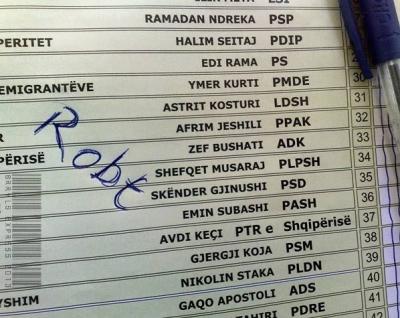 PSP
RAMADAN NDREKA
PERITET HALIM SEITAJ PDIP
EDI RAMA PS
EMIGRANTËVE YMER KURTI PMDE 30
ASTRIT KOSTURI LDSH 31
R AFRIM JESHILI PPAK 32
PËRISË ZEF BUSHATI ADK 33
SHEFQET MUSARAJ PLPSH 34
SKËNDER GJINUSHI PSD 35
EMIN SUBASHI PASH 36
AVDI KEÇI PTR e Shqipërisë 37
GJERGJI KOJA PSM 38
NIKOLIN STAKA PLDN 39
YSHIM GAQO APOSTOLI ADS 40
PDRE 41
Robt